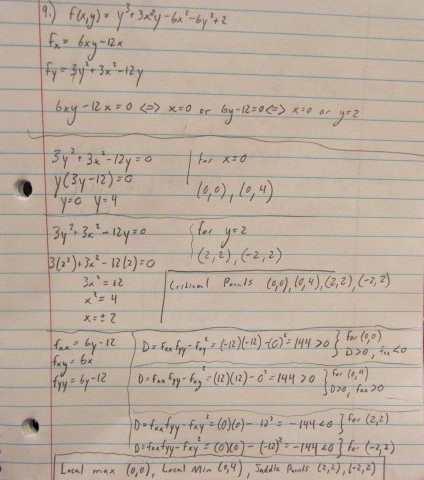 9.) f(x,y) = y³+3x²y-6x²-6y²+2
fx = 6xy-12x
fy = 3y²+3x²-12y
6xy-12x=0 <=> x=0 or 6y-12=0 <=> x=0 or y=2
3y²+3x²-12y=0 | for x=0
y(3y-12)=0 (0,0), (0,4)
y=0 y=4
3y²+3x²-12y=0 for y=2
(2,2), (-2,2)
3(2²)+3x²-12(2)=0
3x²=12 Critical Points (0,0), (0,4), (2,2), (-2,2)
x²=4
x=±2
fxx = 6y-12 D = fxx fyy - fxy² = (-12)(-12) - (0)² = 144 >0 } for (0,0) D>0, fxx<0
fxy = 6x
fyy = 6y-12 D = fxx fyy - fxy² = (12)(12) - 0² = 144 >0 } for (0,4) D>0, fxx>0
D = fxx fyy - fxy² = (0)(0) - 12² = -144 <0 } for (2,2)
D = fxx fyy - fxy² = (0)(0) - (-12)² = -144 <0 } for (-2,2)
Local max (0,0), Local Min (0,4), Saddle Points (2,2), (-2,2)